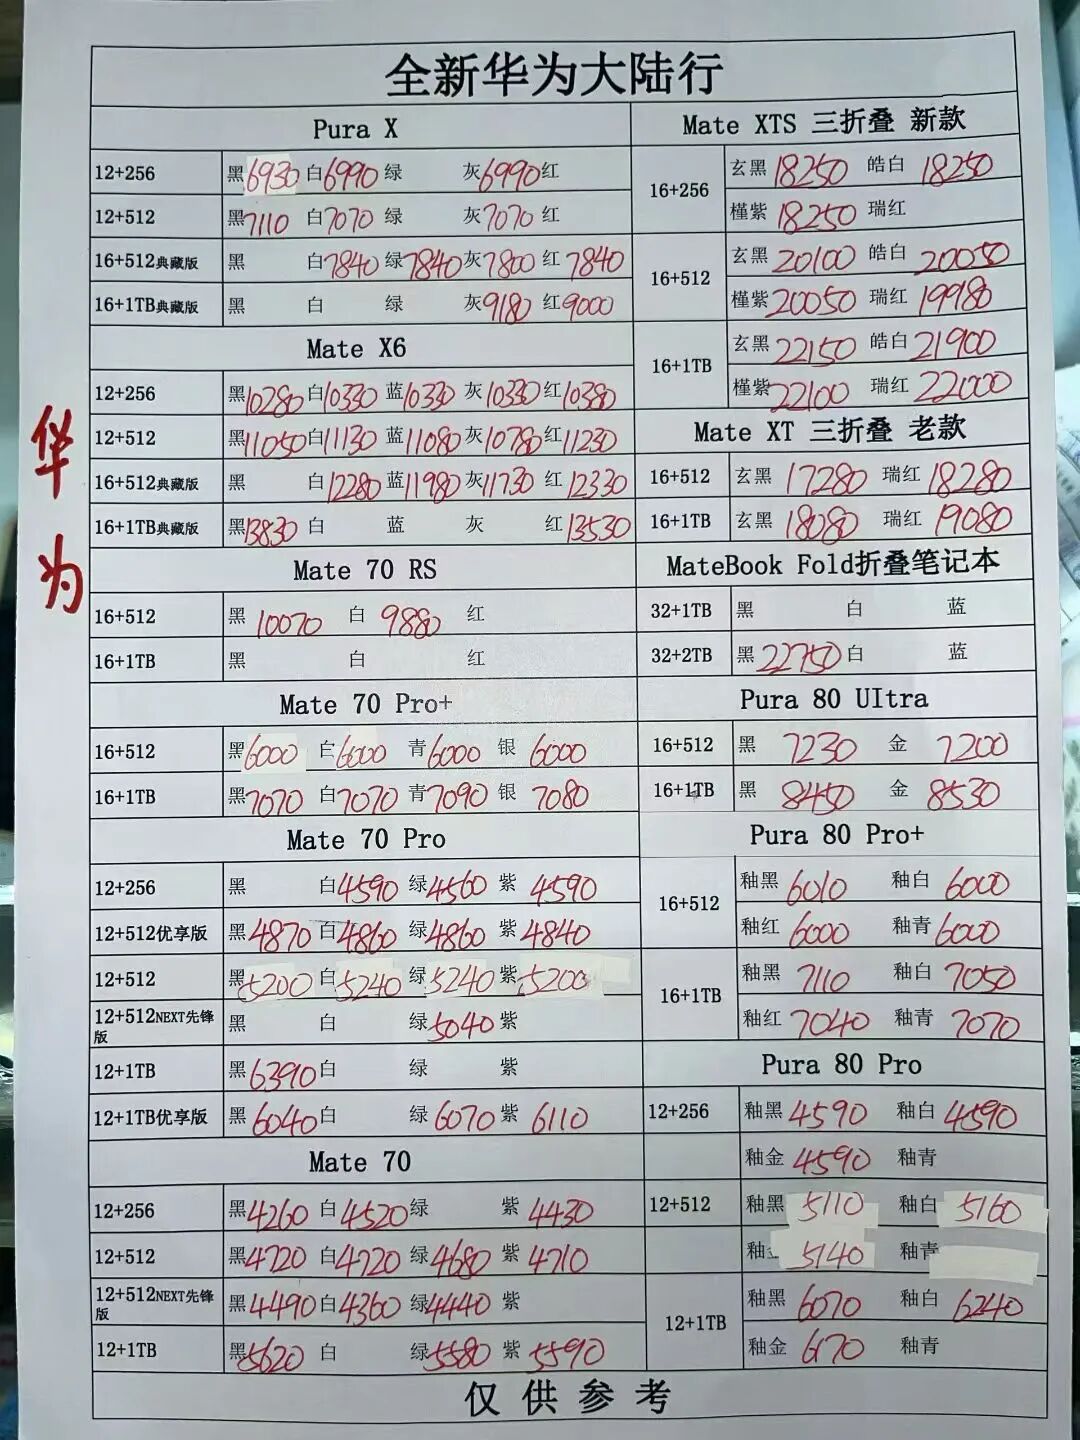 全新华为大陆行
华为
Pura X
12+256 黑6930 白6990 绿 灰6990 红
12+512 黑7110 白7070 绿 灰7070 红
16+512典藏版 黑 白7840 绿7840 灰7800 红7840
16+1TB典藏版 黑 白 绿 灰9180 红9000
Mate X6
12+256 黑10280 白10330 蓝10330 灰10330 红10380
12+512 黑11050 白11130 蓝11080 灰10780 红11230
16+512典藏版 黑 白12280 蓝11980 灰11730 红12330
16+1TB典藏版 黑13830 白 蓝 灰 红13530
Mate 70 RS
16+512 黑 10070 白 9880 红
16+1TB 黑 白 红
Mate 70 Pro+
16+512 黑6000 白6000 青6000 银 6000
16+1TB 黑7070 白7070 青7090 银 7080
Mate 70 Pro
12+256 黑 白4590 绿4560 紫 4590
12+512优享版 黑4870 白4860 绿4860 紫4840
12+512 黑5200 白5240 绿5240 紫5200
12+512NEXT先锋版 黑 白 绿5040 紫
12+1TB 黑6390 白 绿 紫
12+1TB优享版 黑6040 白 绿6070 紫 6110
Mate 70
12+256 黑4260 白4520 绿 紫 4430
12+512 黑4720 白4720 绿4680 紫 4710
12+512NEXT先锋版 黑4490 白4360 绿4440 紫
12+1TB 黑5620 白 绿5580 紫 5590
Mate XTS 三折叠 新款
16+256 玄黑 18250 皓白 18250
槿紫 18250 瑞红
16+512 玄黑 20100 皓白 20050
槿紫 20050 瑞红 19980
16+1TB 玄黑 22150 皓白 21900
槿紫 22100 瑞红 22000
Mate XT 三折叠 老款
16+512 玄黑 17280 瑞红 18280
16+1TB 玄黑 18080 瑞红 19080
MateBook Fold折叠笔记本
32+1TB 黑 白 蓝
32+2TB 黑 22750 白 蓝
Pura 80 UItra
16+512 黑 7230 金 7200
16+1TB 黑 8450 金 8530
Pura 80 Pro+
16+512 釉黑 6010 釉白 6000
釉红 6000 釉青 6000
16+1TB 釉黑 7110 釉白 7050
釉红 7040 釉青 7070
Pura 80 Pro
12+256 釉黑 4590 釉白 4590
釉金 4590 釉青
12+512 釉黑 5110 釉白 5160
釉 5140 釉青
12+1TB 釉黑 6070 釉白 6240
釉金 6170 釉青
仅供参考